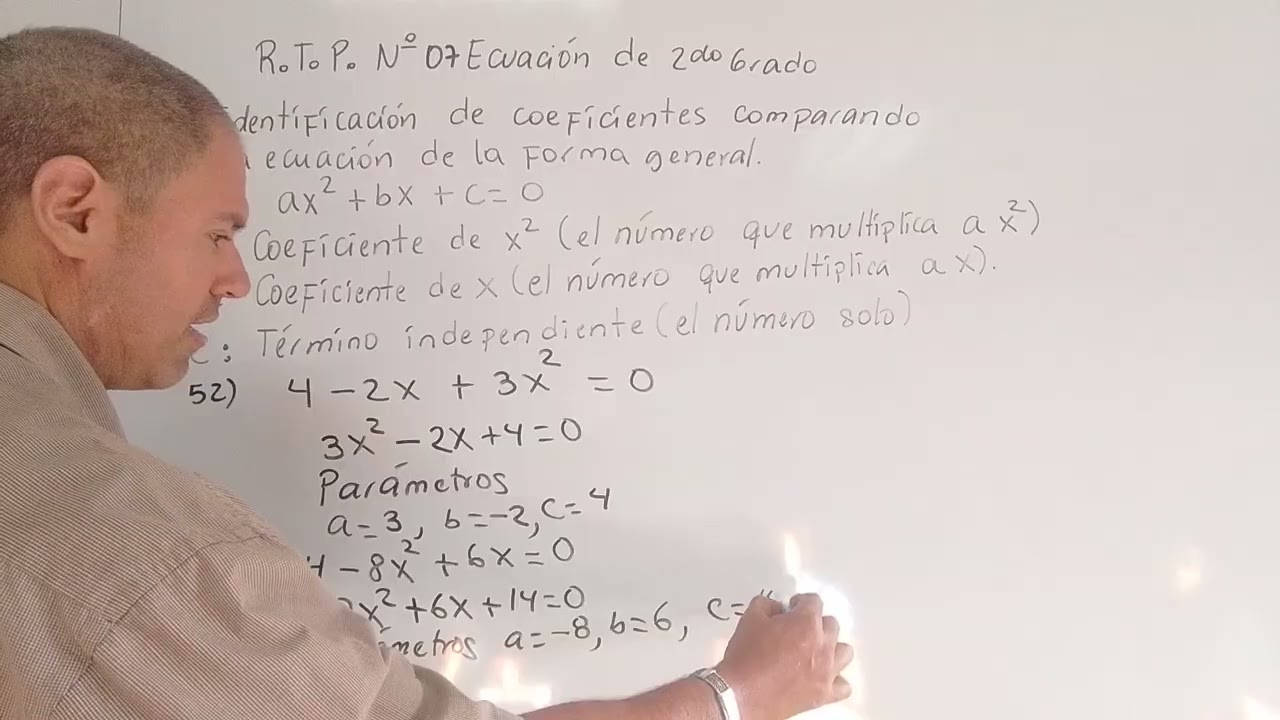 R.T.P. Nº 07 Ecuación de 2do Grado
dentificación de coeficientes comparando
ecuación de la forma general.
ax² + bx + c = 0
Coeficiente de x² (el número que multiplica a x²)
Coeficiente de x (el número que multiplica a x).
c: Término independiente (el número solo)
52) 4 - 2x + 3x² = 0
3x² - 2x + 4 = 0
Parámetros
a = 3, b = -2, c = 4
- 8x² + 6x = 0
x² + 6x + 14 = 0
metros a = -8, b = 6, c =